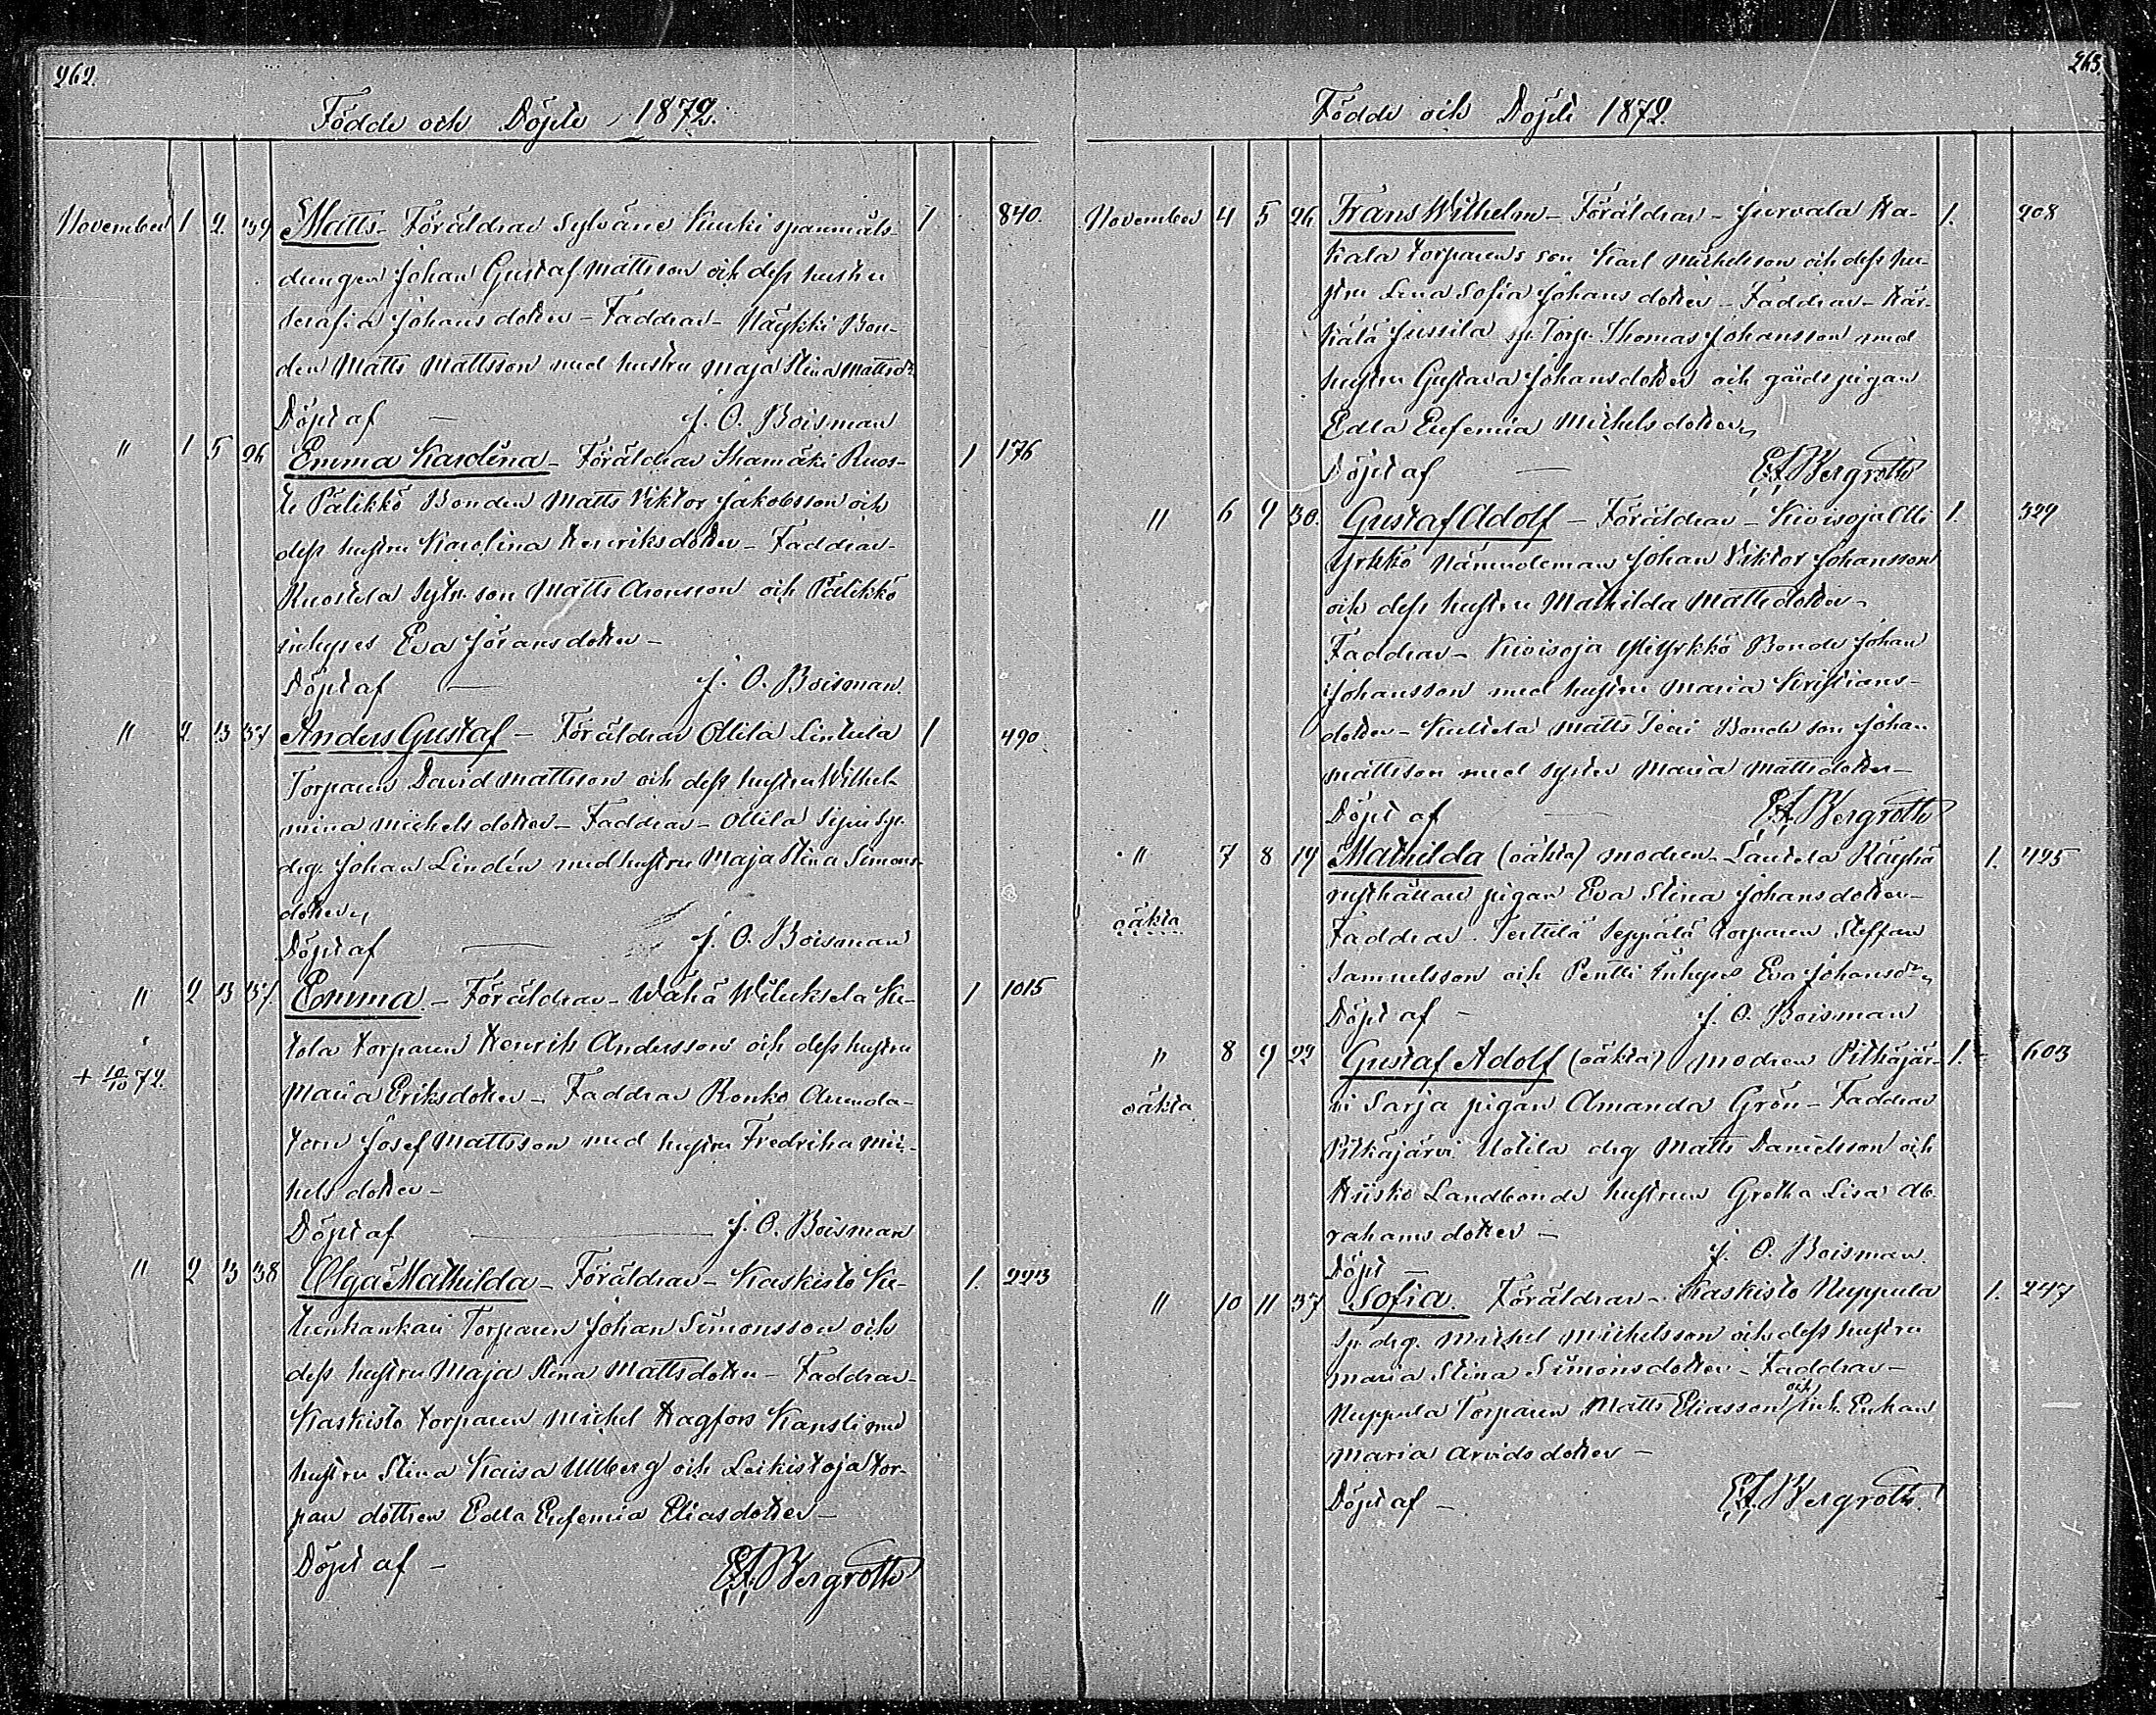 262.
Födde och Döpte 1872.
November 1 2 39 Matts - Föräldrar Sylvänä Kuuki spanmåls- 1 840.
drengen Johan Gustaf Mattsson och dess hustru
Serafia Johansdotter - Faddrar - Näykki Bon-
den Matts Mattsson med hustru Maja Stina Mattsdr
Döpt af — J. O. Boisman
" 1 5 26 Emma Karolina - Föräldrar Ihamäki Ruos- 1 176
te Pälikkö Bonden Matts Viktor Jakobsson och
dess hustru Karolina Henriksdotter - Faddrar -
Ruostela Sytn. son Matts Aronsson och Pälikkö
inhyses Eva Göransdotter -
Döpt af — J. O. Boisman.
" 2 3 37 Anders Gustaf - Föräldrar Ollila Lintula 1 490
Torparen David Mattsson och dess hustru Wilhel-
mina Michelsdotter - Faddrar - Ollila
drg. Johan Lindén med hustru Maja Stina Simons-
dotter
Döpt af — J. O. Boisman
" 2 3 37 Emma - Föräldrar - Wähä Wiluksela Ku- 1 1015
+ 10/10 72. tola torparen Henrik Andersson och dess hustru
Maria Eriksdotter - Faddrar Ronko Arenda-
torn Josef Mattsson med hustru Fredrika Mic-
helsdotter -
Döpt af — J. O. Boisman
" 2 3 38 Olga Mathilda - Föräldrar - Kaskisto Ku- 1. 223
Torparen Johan Simonsson och
dess hustru Maja Stina Mattsdotter - Faddrar -
Kaskisto torparen Michel Hagfors Kansli med
hustru Stina Kaisa Ullberg och Leikistoja tor-
pare dottren Edla Eufemia Eliasdotter -
Döpt af — E.F. Bergroth
263.
Födde och Döpte 1872.
November 4 5 26 Frans Wilhelm - Föräldrar - Jurvala Ka- 1. 208
kala torparens son Karl Michelsson och dess hu-
stru Lena Sofia Johansdotter - Faddrar - Kär-
kälä Jussila sp. Torp. Thomas Johansson med
hustru Gustava Johansdotter och gårdspigan
Edla Eufemia Michelsdotter
Döpt af — E.F. Bergroth
" 6 9 30. Gustaf Adolf - Föräldrar - Kivisoja Ali 1. 329
Yrkkö Nämndeman Johan Viktor Johansson
och dess hustru Mathilda Mattsdotter -
Faddrar - Kivisoja Yli Yrkkö Bonde Johan
Johansson med hustru Maria Kristians-
dotter - Kuttela Matts Teeri Bonde son Johan
Mattsson med syster Maria Mattsdotter -
Döpt af — E.F. Bergroth
" 7 8 19 Mathilda (oäkta) modren - Sauvela Räyhä 1. 425
oäkta rusthållare pigan Eva Stina Johansdotter -
Faddrar - Terttilä Seppälä torparen Steffan
Samuelsson och Pentti inhyses Eva Johansdr
Döpt af - J. O. Boisman
" 8 9 22 Gustaf Adolf (oäkta) modren Pitkäjär- 1. 603
oäkta vi Sarja pigan Amanda Grön - Faddrar
Pitkäjärvi Uotila drg Matts Danielsson och
Kiisko Landbonde hustrun Gretha Lisa Ab-
rahamsdotter -
Döpt — J. O. Boisman
" 10 11 37 Sofia. Föräldrar - Kaskisto Nuppula 1. 247
sp. drg. Michel Michelsson och dess hustru
Maria Stina Simonsdotter - Faddrar -
Nuppula Torparen Matts Eliasson och inh. Enkan
Maria Arvidsdotter -
Döpt af - E.F. Bergroth.